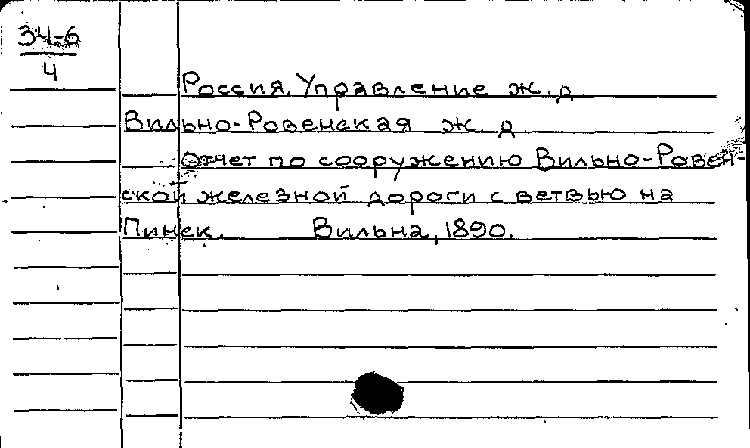 34-6
4
Россия. Управление ж.д
Вильно-Ровенская ж. д
Отчет по сооружению Вильно-Ровен-
ской железной дороги с ветвью на
Пинск. Вильна, 1890.